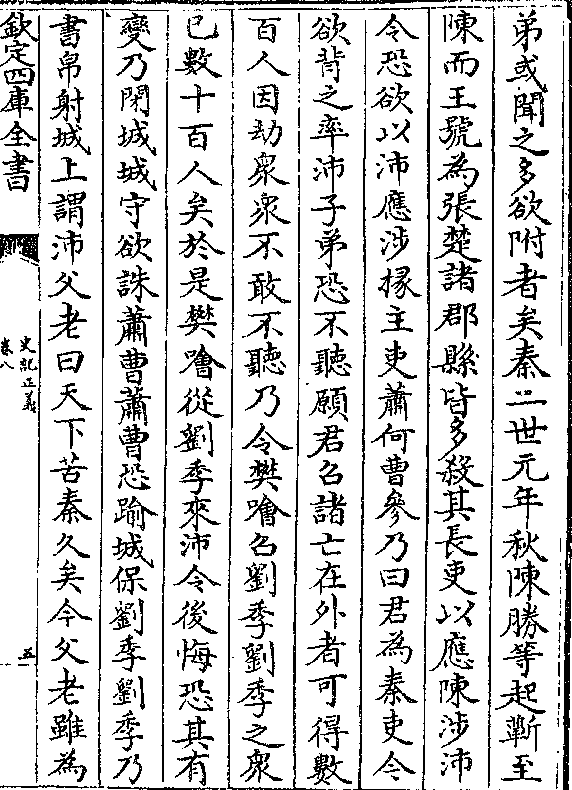 弟或聞之多欲附者矣秦二世元年秋陳勝等起蘄至
陳而王號為張楚諸郡縣皆多殺其長吏以應陳涉沛
令恐欲以沛應涉掾主吏蕭何曹參乃曰君為秦吏今
欲背之率沛子弟恐不聽願君召諸亡在外者可得數
百人因劫衆衆不敢不聽乃令樊噲召劉季劉季之衆
已數十百人矣於是樊噲從劉季來沛令後悔恐其有
變乃閉城城守欲誅蕭曹蕭曹恐踰城保劉季劉季乃
書帛射城上謂沛父老曰天下苦秦久矣今父老雖為
欽定四庫全書
史記正義
卷八
五